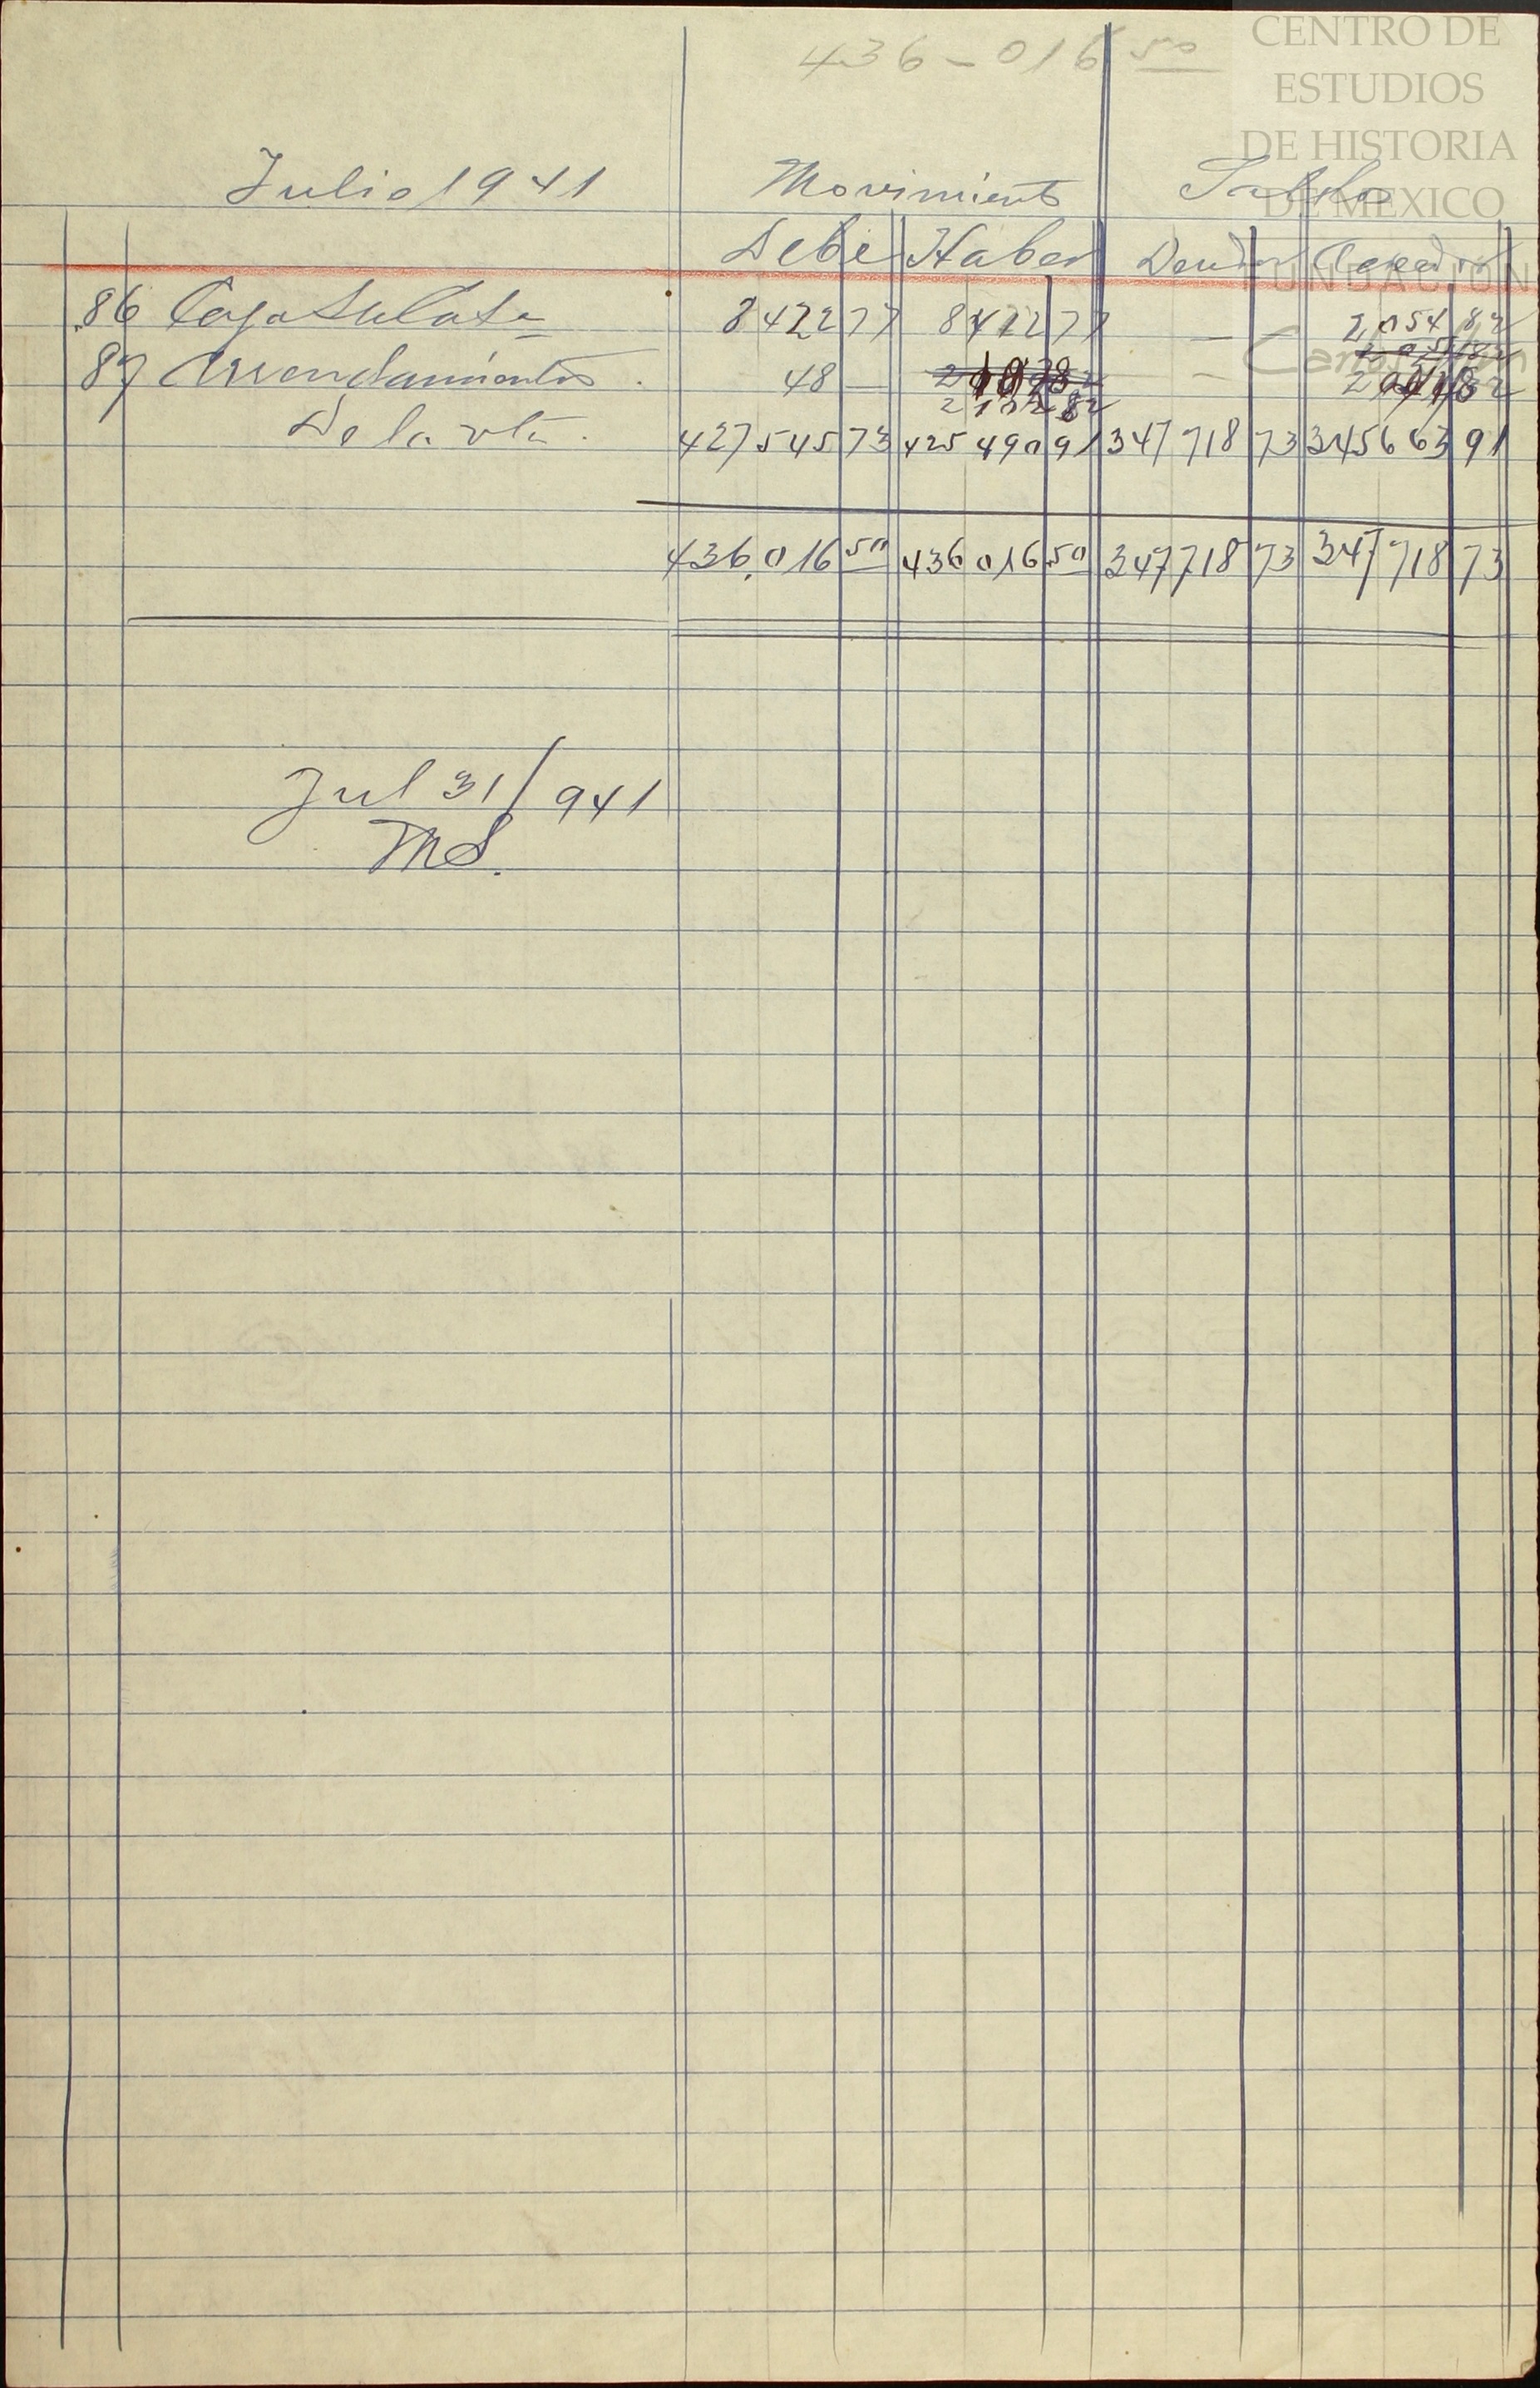 436-016 50
CENTRO DE
ESTUDIOS
DE HISTORIA
DE MEXICO
FUNDACION
Julio 1941 Movimiento Saldo
Debe Haber Deudor Acreedor
86 8422 77 8422 77 — 2054 82
87 Arrendamientos. 48 — —
2132 82
De la vta. 427545 73 425490 91 347718 73 345663 91
436,016 50 436016 50 347718 73 347718 73
Jul 31/941
MS.